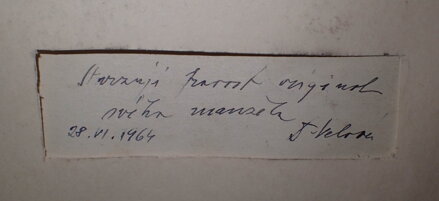 Stvrzuji pravost originál
svého manžela
28.VI.1964